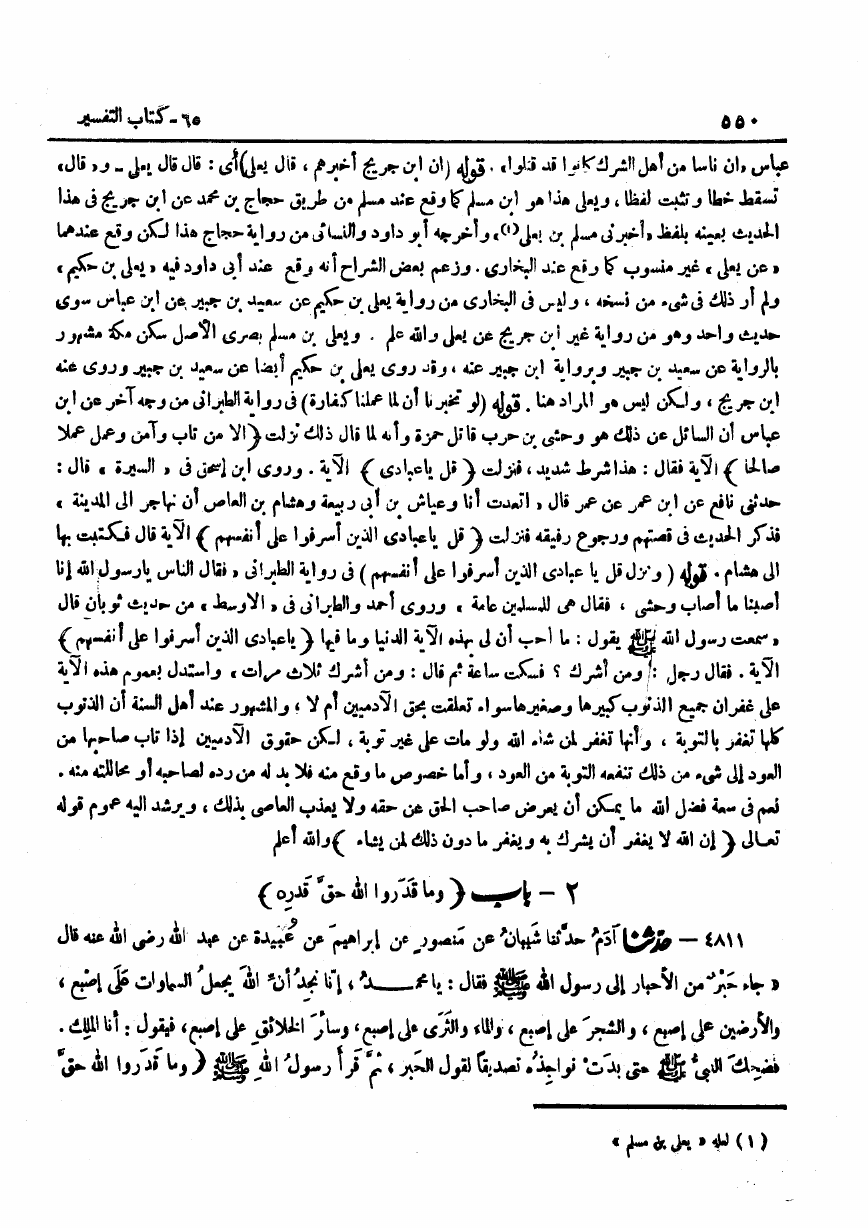 ٥٥٠ ٦٥ - كتاب التفسير
عباس «ان ناسا من أهل الشرك كانوا قد قتلوا» . قوله (ان ابن جريج أخبرهم ، قال يعلى) أى : قال قال يعلى - و«قال»
تسقط خطا وتثبت لفظا ، ويعلى هذا هو ابن مسلم كما وقع عند مسلم من طريق حجاج بن محمد عن ابن جريج فى هذا
الحديث بعينه بلفظ «أخبرنى مسلم بن يعلى(١)» وأخرجه أبو داود والنسائى من رواية حجاج هذا لكن وقع عندهما
« عن يعلى » غير منسوب كما وقع عند البخارى . وزعم بعض الشراح أنه وقع عند أبى داود فيه « يعلى بن حكيم »
ولم أر ذلك فى شىء من نسخه ، وليس فى البخارى من رواية يعلى بن حكيم عن سعيد بن جبير عن ابن عباس سوى
حديث واحد وهو من رواية غير ابن جريج عن يعلى والله علم . ويعلى بن مسلم بصرى الأصل سكن مكة مشهور
بالرواية عن سعيد بن جبير وبرواية ابن جبير عنه ، وقد روى يعلى بن حكيم أيضا عن سعيد بن جبير وروى عنه
ابن جريج ، ولكن ليس هو المراد هنا . قوله (لو تخبرنا أن لما عملنا كفارة) فى رواية الطبرانى من وجه آخر عن ابن
عباس أن السائل عن ذلك هو وحشى بن حرب قاتل حمزة وأنه لما قال ذلك نزلت ﴿ الا من تاب وآمن وعمل عملا
صالحا ﴾ الآية فقال : هذا شرط شديد ، فنزلت ﴿ قل ياعبادى ﴾ الآية . وروى ابن إسحق فى « السيرة » قال :
حدثنى نافع عن ابن عمر عن عمر قال « اتعدت أنا وعياش بن أبى ربيعة وهشام بن العاص أن نهاجر الى المدينة »
فذكر الحديث فى قصتهم ورجوع رفيقه فنزلت ﴿ قل ياعبادى الذين أسرفوا على أنفسهم ﴾ الآية قال فكتبت بها
الى هشام . قوله ( ونزل قل يا عبادى الذين أسرفوا على أنفسهم ) فى رواية الطبرانى « فقال الناس يارسول الله إنا
أصبنا ما أصاب وحشى ، فقال هى للمسلمين عامة » وروى أحمد والطبرانى فى « الاوسط » من حديث ثوبان قال
« سمعت رسول الله ﷺ يقول : ما أحب أن لى بهذه الآية الدنيا وما فيها ﴿ ياعبادى الذين أسرفوا على أنفسهم ﴾
الآية . فقال رجل : ومن أشرك ؟ فسكت ساعة ثم قال : ومن أشرك ثلاث مرات » واستدل بعموم هذه الآية
على غفران جميع الذنوب كبيرها وصغيرها سواء تعلقت بحق الآدميين أم لا ، والمشهور عند أهل السنة أن الذنوب
كلها تغفر بالتوبة ، وأنها تغفر لمن شاء الله ولو مات على غير توبة ، لكن حقوق الآدميين إذا تاب صاحبها من
العود إلى شىء من ذلك تنفعه التوبة من العود ، وأما خصوص ما وقع منه فلا بد له من رده لصاحبه أو محاللته منه .
نعم فى سعة فضل الله ما يمكن أن يعرض صاحب الحق عن حقه ولا يعذب العاصى بذلك ، ويرشد اليه عموم قوله
تعالى ﴿ إن الله لا يغفر أن يشرك به ويغفر ما دون ذلك لمن يشاء ﴾ والله أعلم
٢ - باب ﴿ وما قَدَروا الله حقَّ قَدرِه ﴾
٤٨١١ - حدثنا آدَمُ حدَّثنا شَيبانُ عن مَنصورٍ عن إبراهيمَ عن عُبيدة عن عبد الله رضى الله عنه قال
« جاء حَبْرٌ من الأحبار إلى رسول الله ﷺ فقال : يا محمـــدُ ، إنَّا نجدُ أنَّ اللهَ يجعلُ السماوات عَلَى إصْبع ،
والأرضين على إصبع ، والشجرَ على إصبع ، والماء والثَّرَى على إصبع ، وسائرَ الخلائق على إصبع ، فيقول : أنا الملِك .
فضحِكَ النبىُّ ﷺ حتى بدَتْ نواجِذُه تصديقاً لقول الحَبر ، ثمَّ قرأ رسولُ اللهِ ﷺ ﴿ وما قدَروا الله حقَّ
(١) لعله « يعلى بن مسلم »